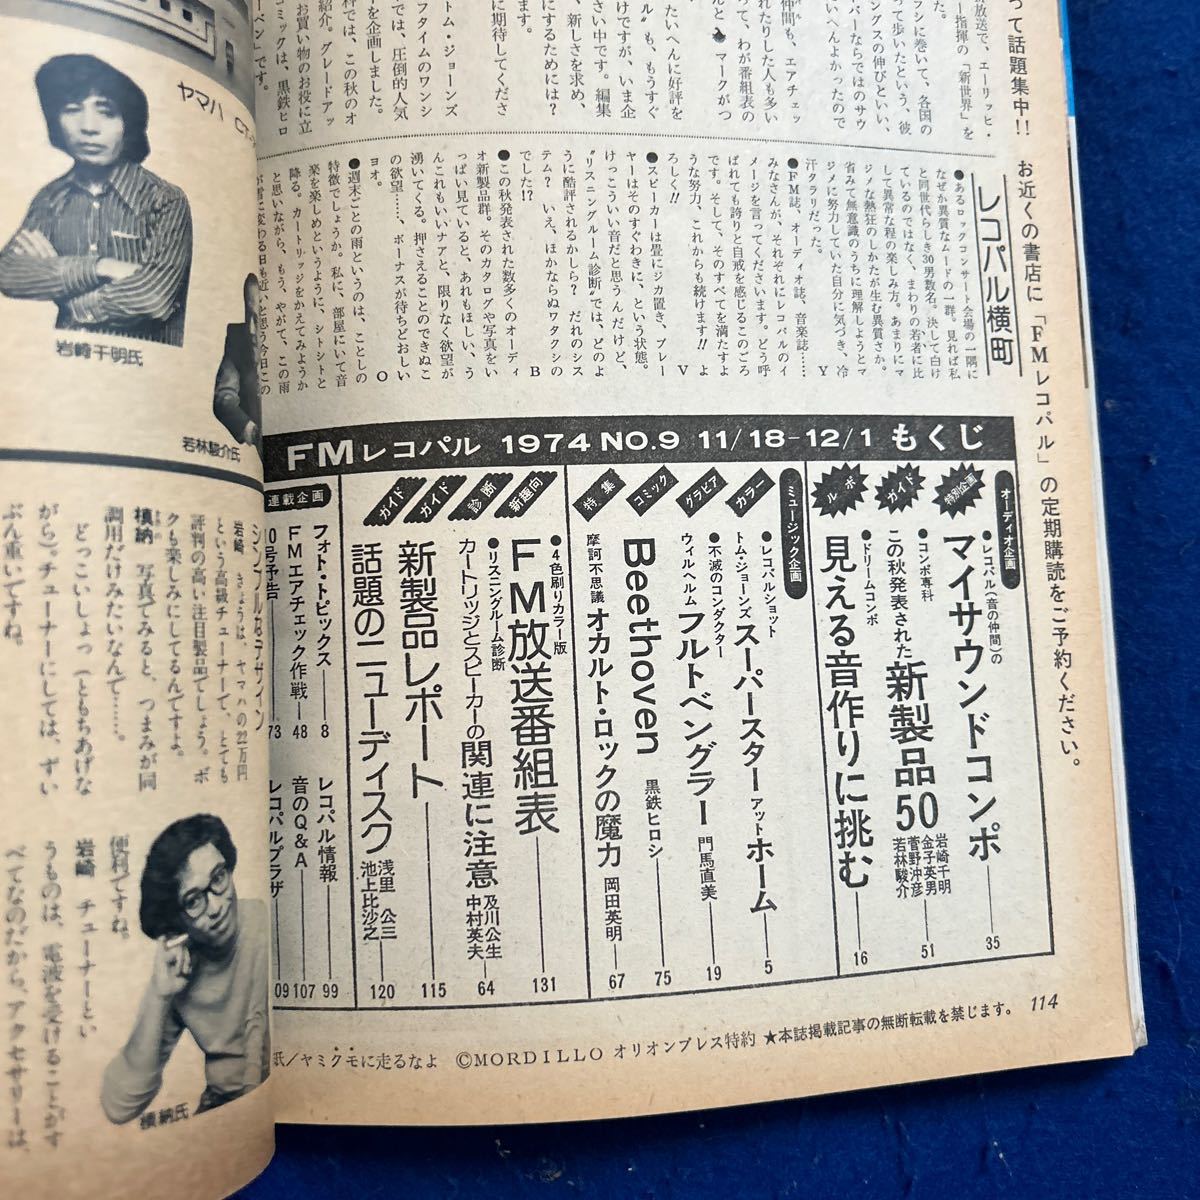 って話題集中!!
お近くの書店に「FMレコパル」の定期購読をご予約ください。
放送で、エーリッヒ・
ー指揮の「新世界」を
た。
ラシに巻いて、各国の
って歩いたという、彼
ングスの伸びといい、
バーならではのサウ
いへんよかったので
仲間も、エアチェッ
れたりした人も多い
って、わが番組表の
んと マークがつ
たいへんに好評を
ル”も、もうすぐ
けですが、いま企
さい中です。編集
、新しさを求め、
にするためには?
に期待してくださ
トム・ジョーンズ
フタイムのワンシ
では、圧倒的人気
ーを企画しました。
科では、この秋のオ
紹介。グレードアッ
お買い物のお役に立
コミックは、黒鉄ヒロ
ーベン」です。
レコパル横町
●あるロックコンサート会場の一隅に
なぜか異質なムードの一群。見れば私
と同世代らしき30男数名。決して白け
ているのではなく、まわりの若者に比
して異常な程の楽しみ方。あまりにマ
ジメな熱狂のしかたが生む異質さか。
省みて無意識のうちに理解しようとマ
ジメに努力していた自分に気づき、冷
汗タラリだった。 Y
●FM誌、オーディオ誌、音楽誌……
みなさんが、それぞれにレコパルのイ
メージを言ってくださいます。どう呼
ばれても誇りと自戒を感じるこのごろ
です。そして、そのすべてを満たすよ
うな努力、これからも続けます!!よ
ろしく!! V
●スピーカーは畳にジカ置き、プレー
ヤーはそのすぐわきに、という状態。
けっこういい音だと思うんだけど、
“リスニングルーム診断”では、どのよ
うに酷評されるかしら? だれのシス
テム? いえ、ほかならぬワタクシの
でした!? B
●この秋発表された数多くのオーディ
オ新製品群。そのカタログや写真をい
っぱい見ていると、あれもほしい、う
んこれもいいナアと、限りなく欲望が
湧いてくる。押さえることのできぬこ
の欲望……、ボーナスが待ちどおしい
ヨオ。 O
●週末ごとの雨というのは、ことしの
特徴でしょうか。私に、部屋にいて音
楽を楽しめというように、シトシトと
降る。カートリッジをかえてみようか
と思いながら、もう、やがて、この雨
が雪に変わる日も近いと思う今日この
FMレコパル 1974 NO.9 11/18-12/1 もくじ
オーディオ企画
特別企画
●レコパル(音の仲間)の
マイサウンドコンポ 35
ガイド
●コンポ専科
この秋発表された新製品50
岩崎千明
金子英男
菅野沖彦
若林駿介
51
ルポ
●ドリームコンポ
見える音作りに挑む 16
ミュージック企画
カラー
●レコパルショット
トム・ジョーンズ スーパースターアットホーム 5
グラビア
●不滅のコンダクター
ウィルヘルム フルトベングラー 門馬直美 19
コミック
Beethoven 黒鉄ヒロシ 75
特集
摩訶不思議 オカルト・ロックの魔力 岡田英明 67
新趣向
●4色刷りカラー版
FM放送番組表 131
診断
●リスニングルーム診断
カートリッジとスピーカーの関連に注意
及川公生
中村英夫
64
ガイド
新製品レポート 115
ガイド
話題のニューディスク
浅里公三
池上比沙之
120
連載企画
フォト・トピックス 8
レコパル情報 99
FMエアチェック作戦 48
音のQ&A 107
10号予告 73
レコパルプラザ 109
114
紙/ヤミクモに走るなよ ©MORDILLO オリオンプレス特約 ★本誌掲載記事の無断転載を禁じます。
ヤマハ CT-
岩崎千明氏
若林駿介氏
シンプルなデザイン
岩崎 きょうは、ヤマハの22万円
という高級チューナーで、とても
評判の高い注目製品でしょう。ボ
クも楽しみにしてるんですよ。
槙納 写真でみると、つまみが同
調用だけみたいなんで……。
どっこいしょっ(ともちあげな
がら)。チューナーにしては、ずい
ぶん重いですね。
便利ですね。
岩崎 チューナーとい
うものは、電波を受けることがす
べてなのだから、アクセサリーは、
槙納氏